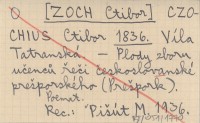 [ZOCH Ctibor] CZO-
CHIUS Ctibor 1836. Víla
Tatranská — Plody zboru
učenců řeči českoslovanské
prešporského (Prešpork).
Poemat.
Rec.: Pišút M. 1936.